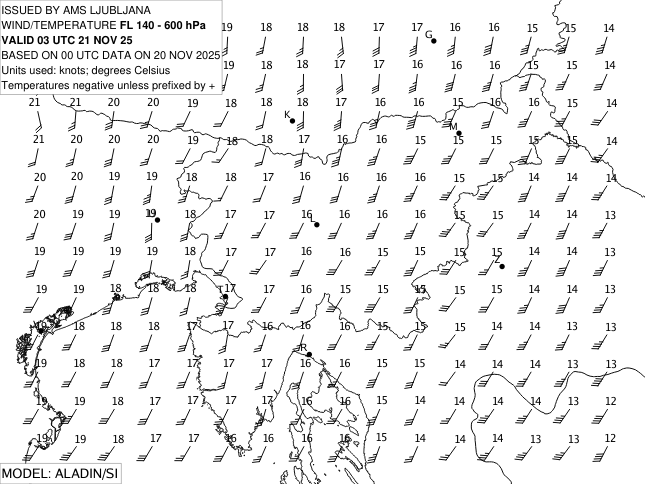 ISSUED BY AMS LJUBLJANA
WIND/TEMPERATURE FL 140 - 600 hPa
VALID 03 UTC 21 NOV 25
BASED ON 00 UTC DATA ON 20 NOV 2025
Units used: knots; degrees Celsius
Temperatures negative unless prefixed by +
19 18 18 17 17 16 16 16 15 15 14
G
19 18 18 18 17 17 16 16 15 15 14
21 21 20 20 19 18 18 18 17 16 16 15 16 16 15 14
K
M
21 20 20 20 19 18 18 17 16 16 15 15 15 15 15 14
20 20 19 19 18 18 17 17 16 16 16 15 15 14 14 14
20 19 19 19 18 17 17 16 16 16 16 15 15 14 14 13
L
19 19 19 19 18 17 17 16 16 15 15 15 15 14 14 13
Z
19 19 18 18 18 17 17 16 16 15 15 15 14 14 14 13
T
19 18 18 18 17 17 16 16 16 15 15 15 14 14 13 13
R
19 18 18 17 17 17 17 16 16 15 15 14 14 14 13 13
19 19 18 17 17 17 17 16 16 15 15 14 14 14 13 12
19 19 18 17 17 16 16 16 16 15 14 14 14 13 13 12
MODEL: ALADIN/SI